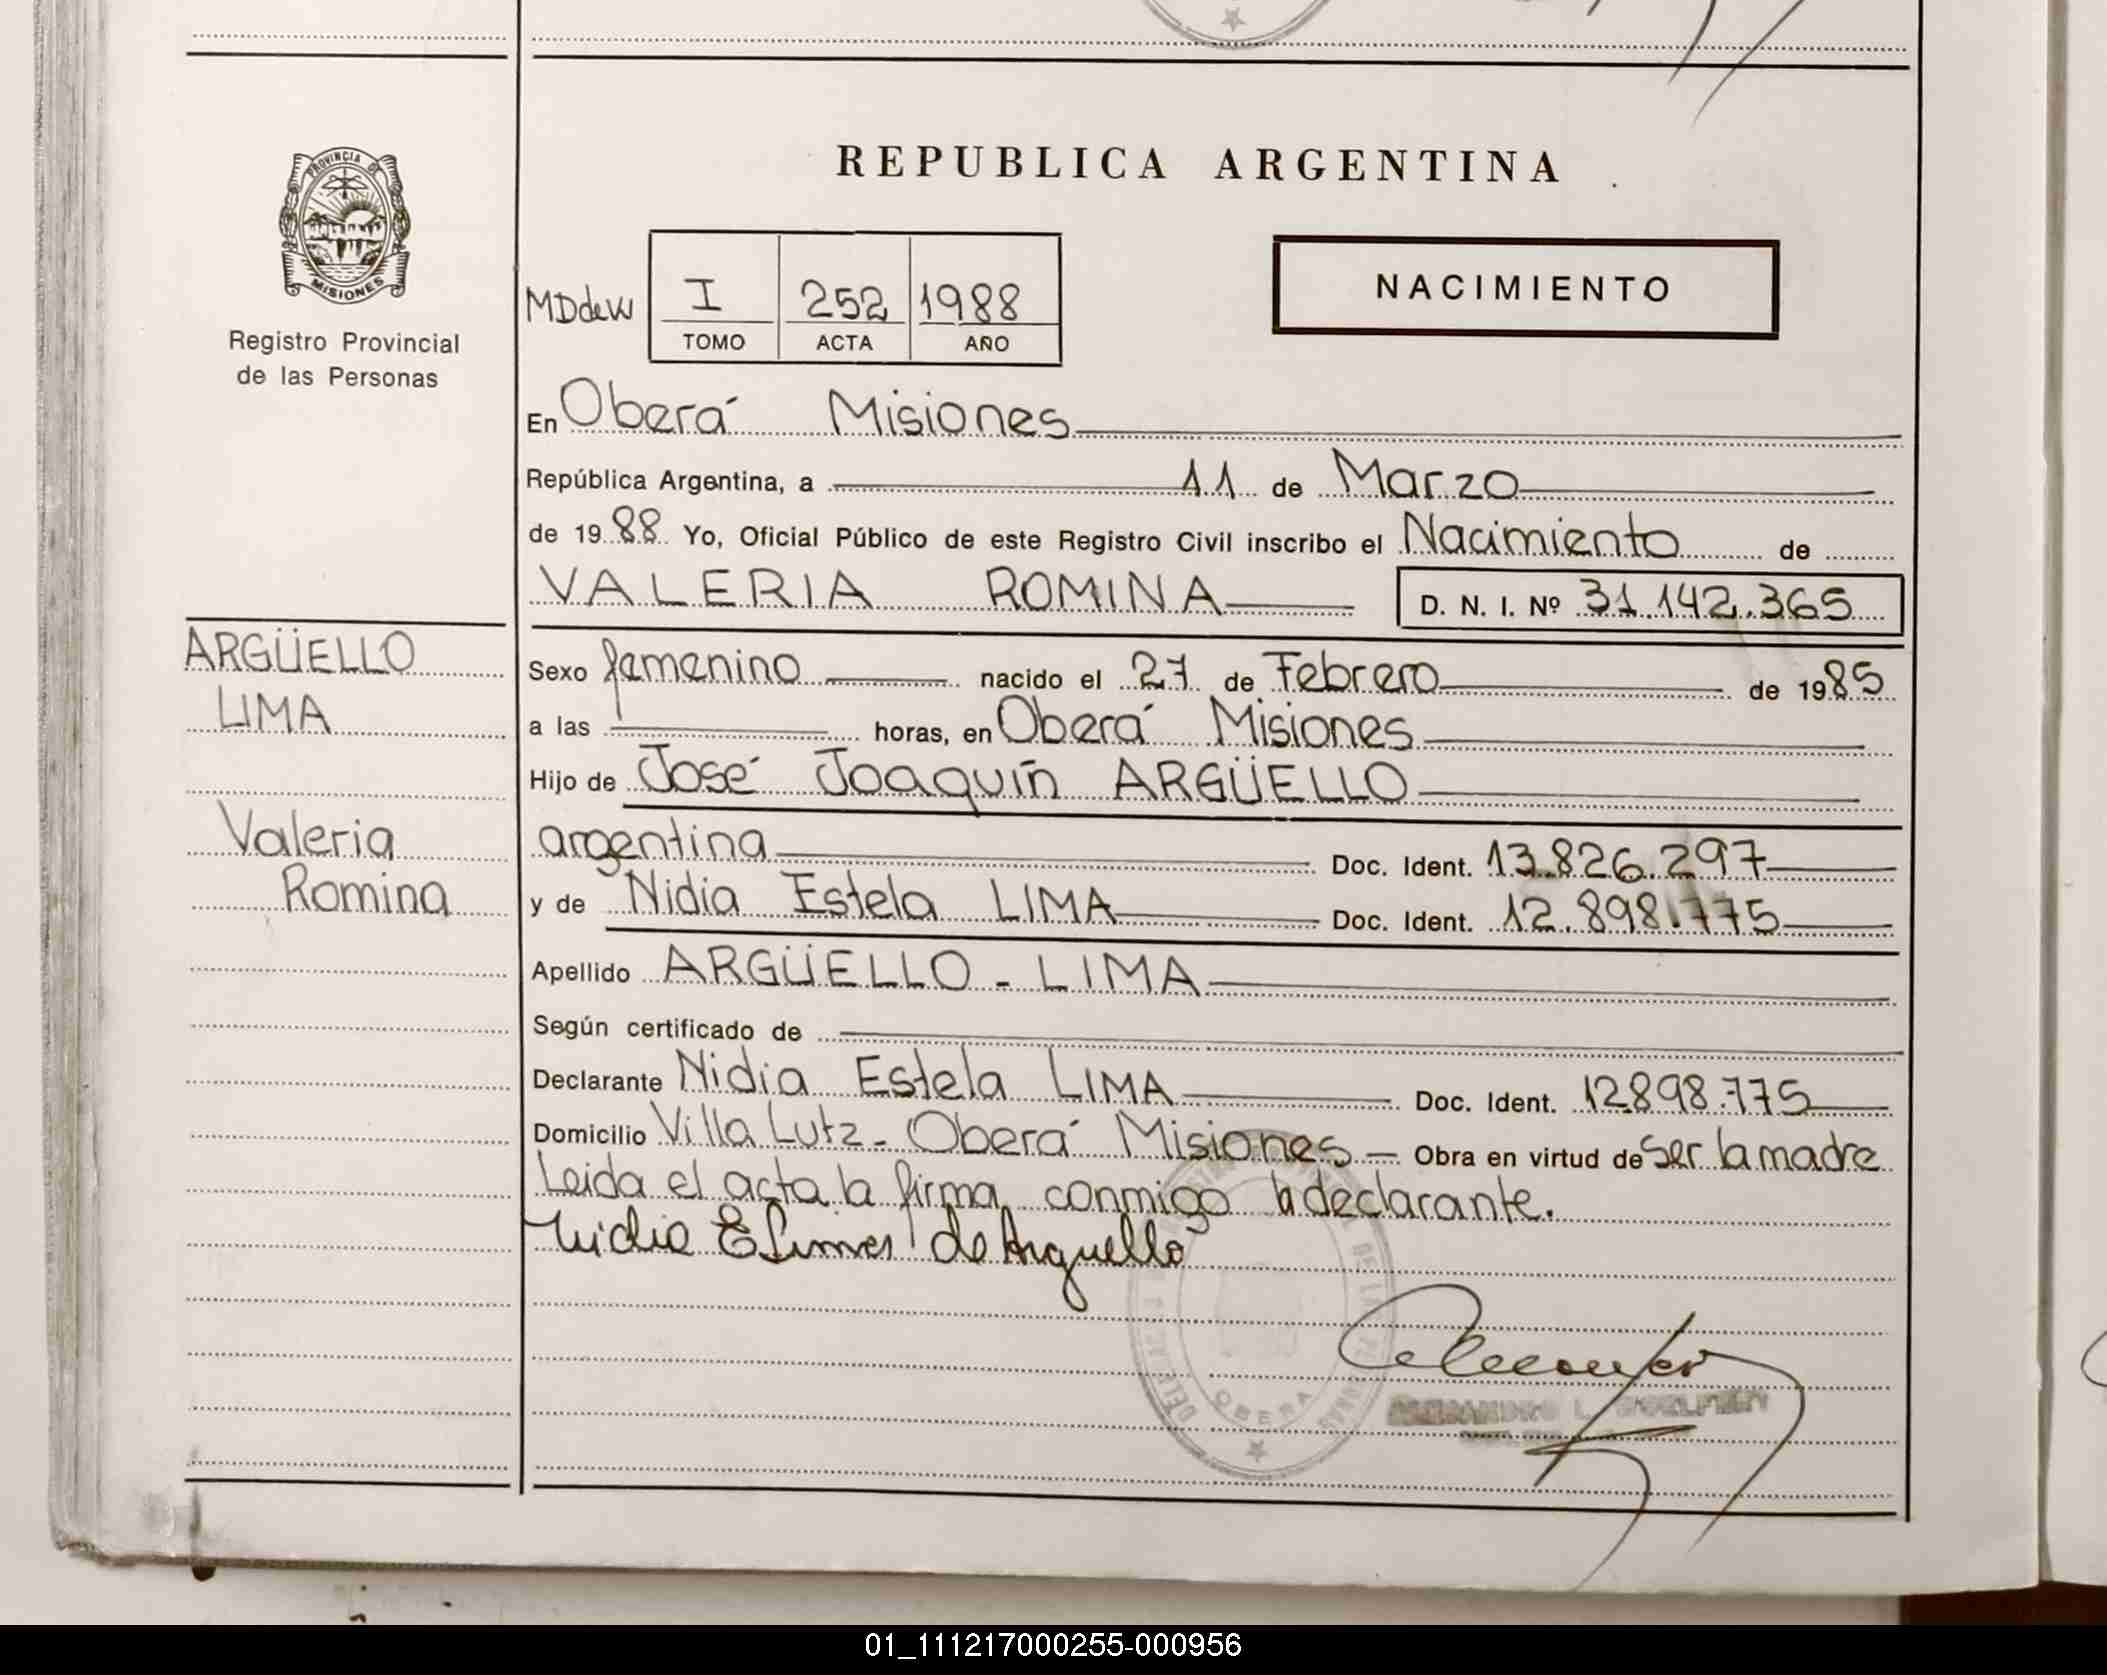 REPUBLICA ARGENTINA
PROVINCIA DE
MISIONES
Registro Provincial
de las Personas
MDdeW
I 252 1988
TOMO ACTA AÑO
NACIMIENTO
En Oberá Misiones
República Argentina, a 11 de Marzo
de 1988 Yo, Oficial Público de este Registro Civil inscribo el Nacimiento de
VALERIA ROMINA D. N. I. Nº 31.142.365
ARGÜELLO
LIMA
Valeria
Romina
Sexo femenino nacido el 27 de Febrero de 1985
a las horas, en Oberá Misiones
Hijo de José Joaquín ARGÜELLO
argentina Doc. Ident. 13.826.297
y de Nidia Estela LIMA Doc. Ident. 12.898.775
Apellido ARGÜELLO - LIMA
Según certificado de
Declarante Nidia Estela LIMA Doc. Ident. 12898.775
Domicilio Villa Lutz - Oberá Misiones - Obra en virtud de ser la madre
Leida el acta la firma conmigo la declarante.
Nidia E de Arguello
OBERA
01_111217000255-000956